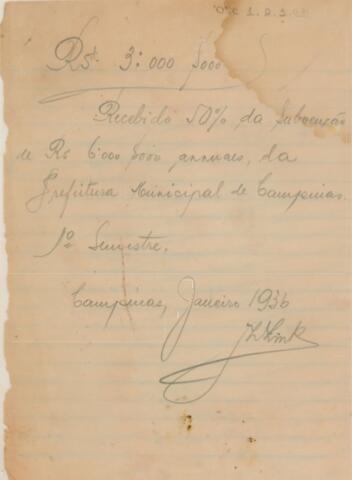 Rs. 3:000$000
Recebido 50% da Subvenção
de Rs 6:000$000 annuaes, da
Prefeitura Municipal de Campinas.
1º Semestre.
Campinas, Janeiro 1936